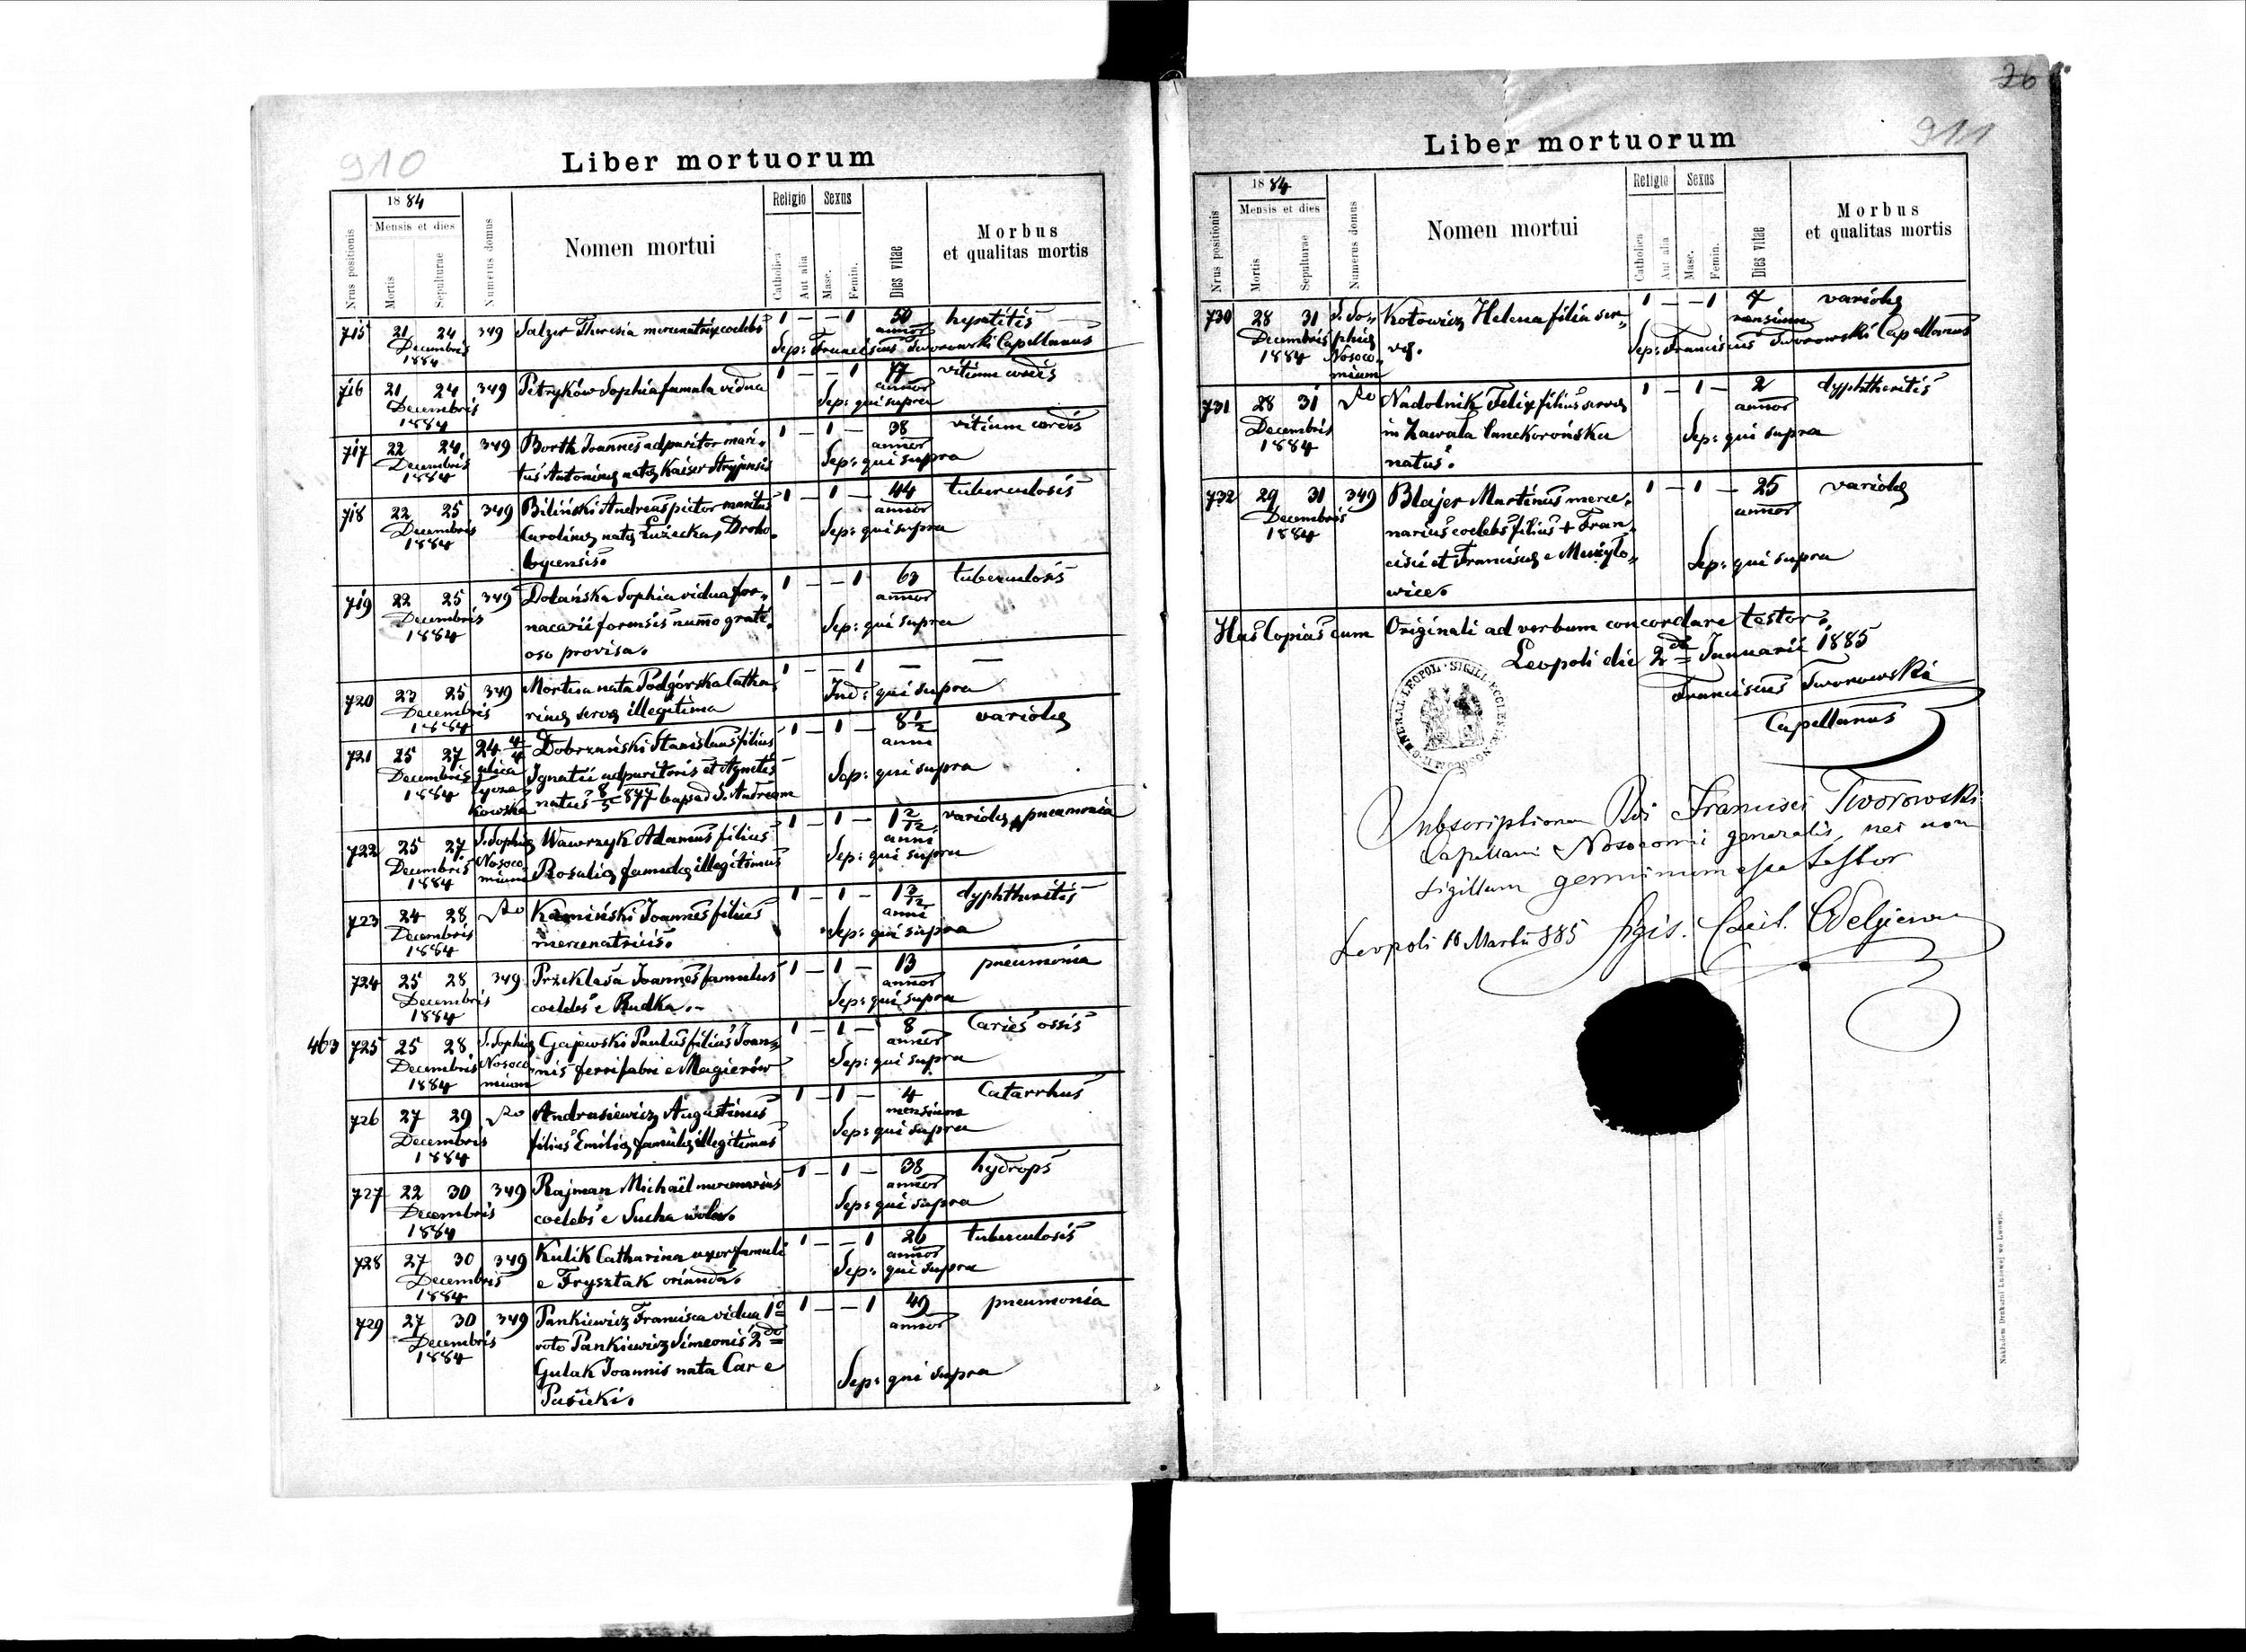 910
Liber mortuorum
Nrus positionis
1884
Mensis et dies
Mortis
Sepulturae
Numerus domus
Nomen mortui
Religio
Catholica
Aut alia
Sexus
Masc.
Femin.
Dies vitae
Morbus
et qualitas mortis
715 21 24 349 Salzer Theresia mercenatrix coelebs 1 — — 1 50 hepatitis
Decembris annor
1884 Sep: Franciscus Tworowski Capellanus
716 21 24 349 Petryków Sophia famula vidua 1 — — 1 77 vitium cordis
Decembris annor
1884 Sep: qui supra
717 22 24 349 Borth Joannes adparitor mari- 1 — 1 — 38 vitium cordis
Decembris tus Antoninę natę Kaiser Stryjensis annor
1884 Sep: qui supra
718 22 25 349 Biliński Andreas pictor maritus 1 — 1 — 44 tuberculosis
Decembris Carolinę natę Łużecka, Droho- annor
1884 bycensis. Sep: qui supra
719 22 25 349 Dolańska Sophia vidua for- 1 — — 1 63 tuberculosis
Decembris nacarii forensis numo grati- annor
1884 oso provisa. Sep: qui supra
720 23 25 349 Mortua nata Podgórska Catha- 1 — — 1 — —
Decembris rinę servę illegitima Ind: qui supra
1884
721 25 27 24 4/4 Dobrzański Stanislaus filius 1 — 1 — 8 1/2 variolę
Decembris ulica Ignatii adparitoris et Agnetis anni
1884 Łycza- natus 8/5 877 baps ad S. Andream Sep: qui supra
kowska
722 25 27 S. Sophię Wawrzyk Adamus filius 1 — 1 — 1 2/12 variolę, pneumonia
Decembris Nosoco- Rosalię famulę illegitimus anni
1884 mium Sep: qui supra
723 24 28 Kamiński Joannes filius 1 — 1 — dyphtheritis
Decembris mercenatricis. anni
1884 Sep: qui supra
724 25 28 349 Przeklasa Joannes famulus 1 — 1 — 13 pneumonia
Decembris coelebs e Rudka. annor
1884 Sep: qui supra
463 725 25 28 S. Sophię Gajewski Paulus filius Joan- 1 — 1 — 8 Caries ossis
Decembris Nosoco- nis ferrifabri e Magierów annor
1884 mium Sep: qui supra
726 27 29 Andrasiewicz Augustinus 1 — 1 — 4 Catarrhus
Decembris filius Emilię famulę illegitimus mensium
1884 Sep: qui supra
727 22 30 349 Rajman Michaël mercenarius 1 — 1 — 38 hydrops
Decembris coelebs e Sucha wola. annor
1884 Sep: qui supra
728 27 30 349 Kulik Catharina uxor famuli 1 — — 1 26 tuberculosis
Decembris e Frysztak oriunda. annor
1884 Sep: qui supra
729 27 30 349 Pankiewicz Francisca vidua 1o 1 — — 1 49 pneumonia
Decembris voto Pankiewicz Simeonis 2do annor
1884 Gulak Joannis nata Car e Sep: qui supra
Pasieki.
26
911
Liber mortuorum
Nrus positionis
1884
Mensis et dies
Mortis
Sepulturae
Numerus domus
Nomen mortui
Religio
Catholica
Aut alia
Sexus
Masc.
Femin.
Dies vitae
Morbus
et qualitas mortis
730 28 31 S. So- Kotowicz Helena filia ser- 1 — — 1 7 variolę
Decembris phię vę. mensium
1884 Nosoco- Sep: Franciscus Tworowski Capellanus
mium
731 28 31 Nadolnik Felix filius servę 1 — 1 — 2 dyphtheritis
Decembris in Zawała lanckorońska annor
1884 natus. Sep: qui supra
732 29 31 349 Blajer Martinus merce- 1 — 1 — 25 variolę
Decembris narius coelebs filius + Fran- annor
1884 cisci et Franciscę e Mużyło- Sep: qui supra
wice.
Has Copias cum Originali ad verbum concordare testor.
Leopoli die 2da Januarii 1885
Franciscus Tworowski
Capellanus
Subscriptionem Rdi Francisci Tworowski
Capellani Nosocomii generalis nec non
sigillum genuinum esse testor
Leopoli 18 Martii 885
Nakładem Drukarni Ludowej we Lwowie.